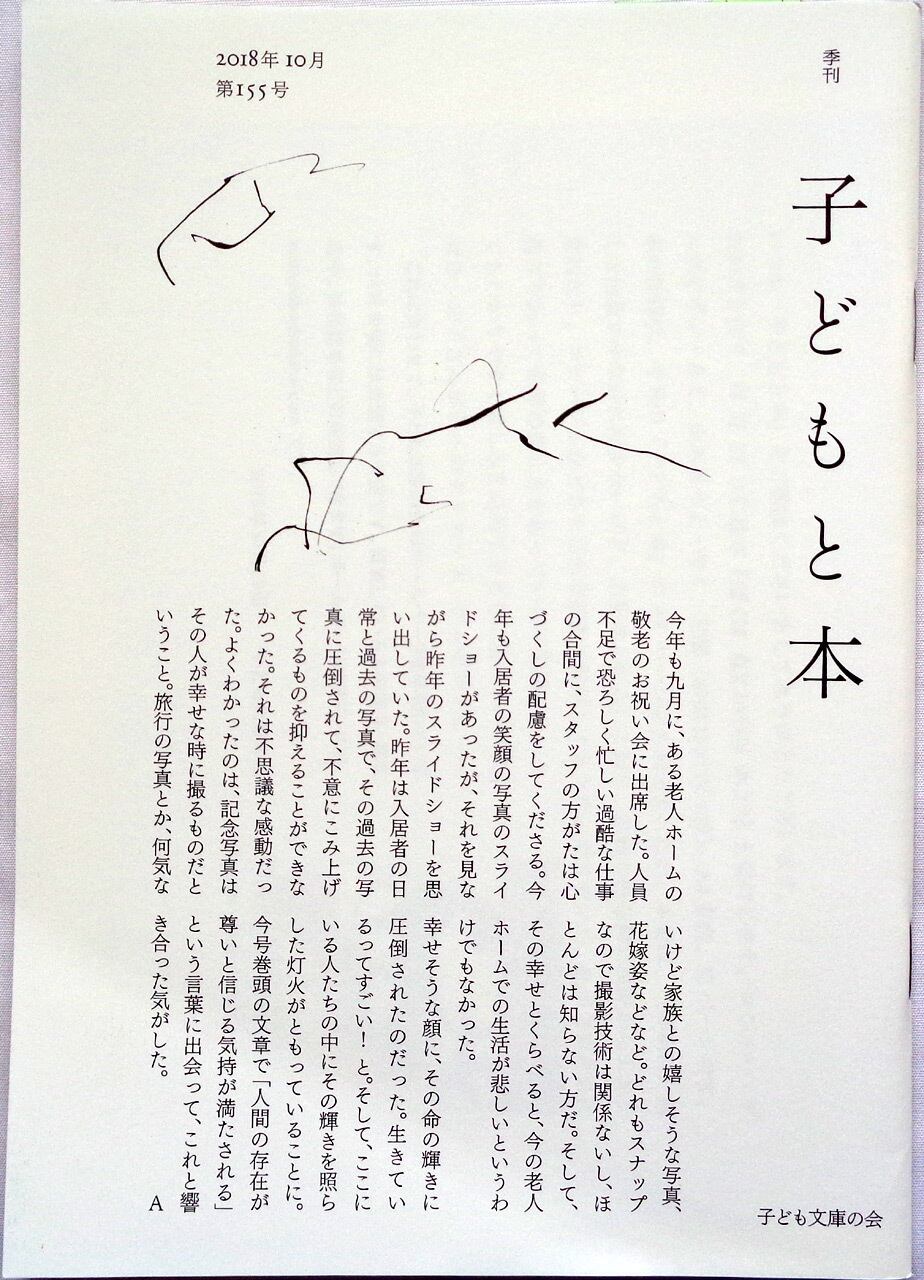 季刊
子どもと本
2018年 10月
第155号
今年も九月に、ある老人ホームの
敬老のお祝い会に出席した。人員
不足で恐ろしく忙しい過酷な仕事
の合間に、スタッフの方がたは心
づくしの配慮をしてくださる。今
年も入居者の笑顔の写真のスライ
ドショーがあったが、それを見な
がら昨年のスライドショーを思
い出していた。昨年は入居者の日
常と過去の写真で、その過去の写
真に圧倒されて、不意にこみ上げ
てくるものを抑えることができな
かった。それは不思議な感動だっ
た。よくわかったのは、記念写真は
その人が幸せな時に撮るものだと
いうこと。旅行の写真とか、何気な
いけど家族との嬉しそうな写真、
花嫁姿などなど。どれもスナップ
なので撮影技術は関係ないし、ほ
とんどは知らない方だ。そして、
その幸せとくらべると、今の老人
ホームでの生活が悲しいというわ
けでもなかった。
幸せそうな顔に、その命の輝きに
圧倒されたのだった。生きてい
るってすごい！ と。そして、ここに
いる人たちの中にその輝きを照ら
した灯火がともっていることに。
今号巻頭の文章で「人間の存在が
尊いと信じる気持が満たされる」
という言葉に出会って、これと響
き合った気がした。
A
子ども文庫の会